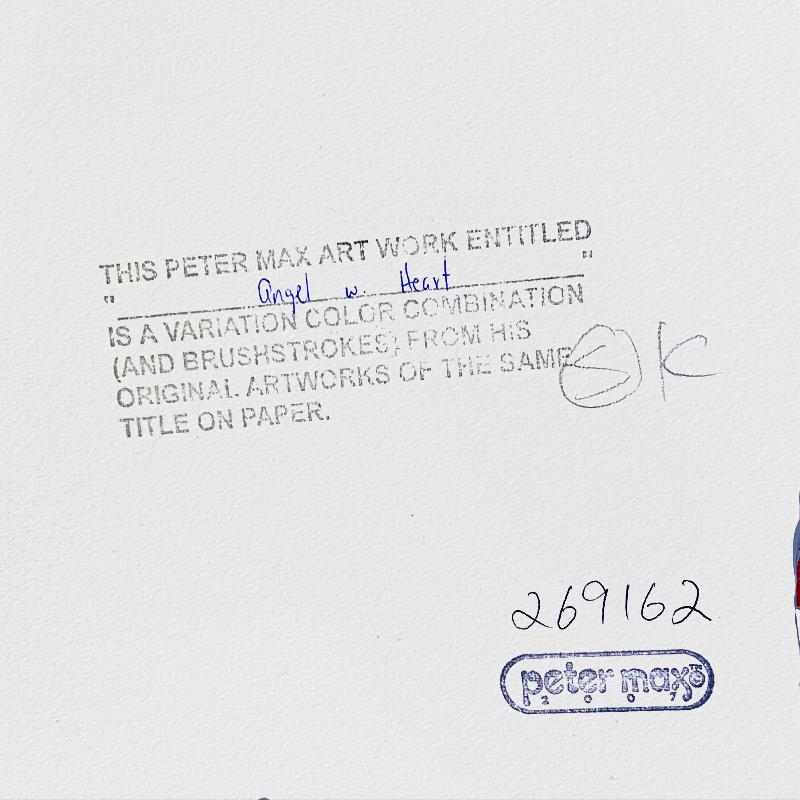 THIS PETER MAX ART WORK ENTITLED
" Angel w. Heart "
IS A VARIATION COLOR COMBINATION
(AND BRUSHSTROKES) FROM HIS
ORIGINAL ARTWORKS OF THE SAME
TITLE ON PAPER.
SK
269162
peter max™
2 0 0 7